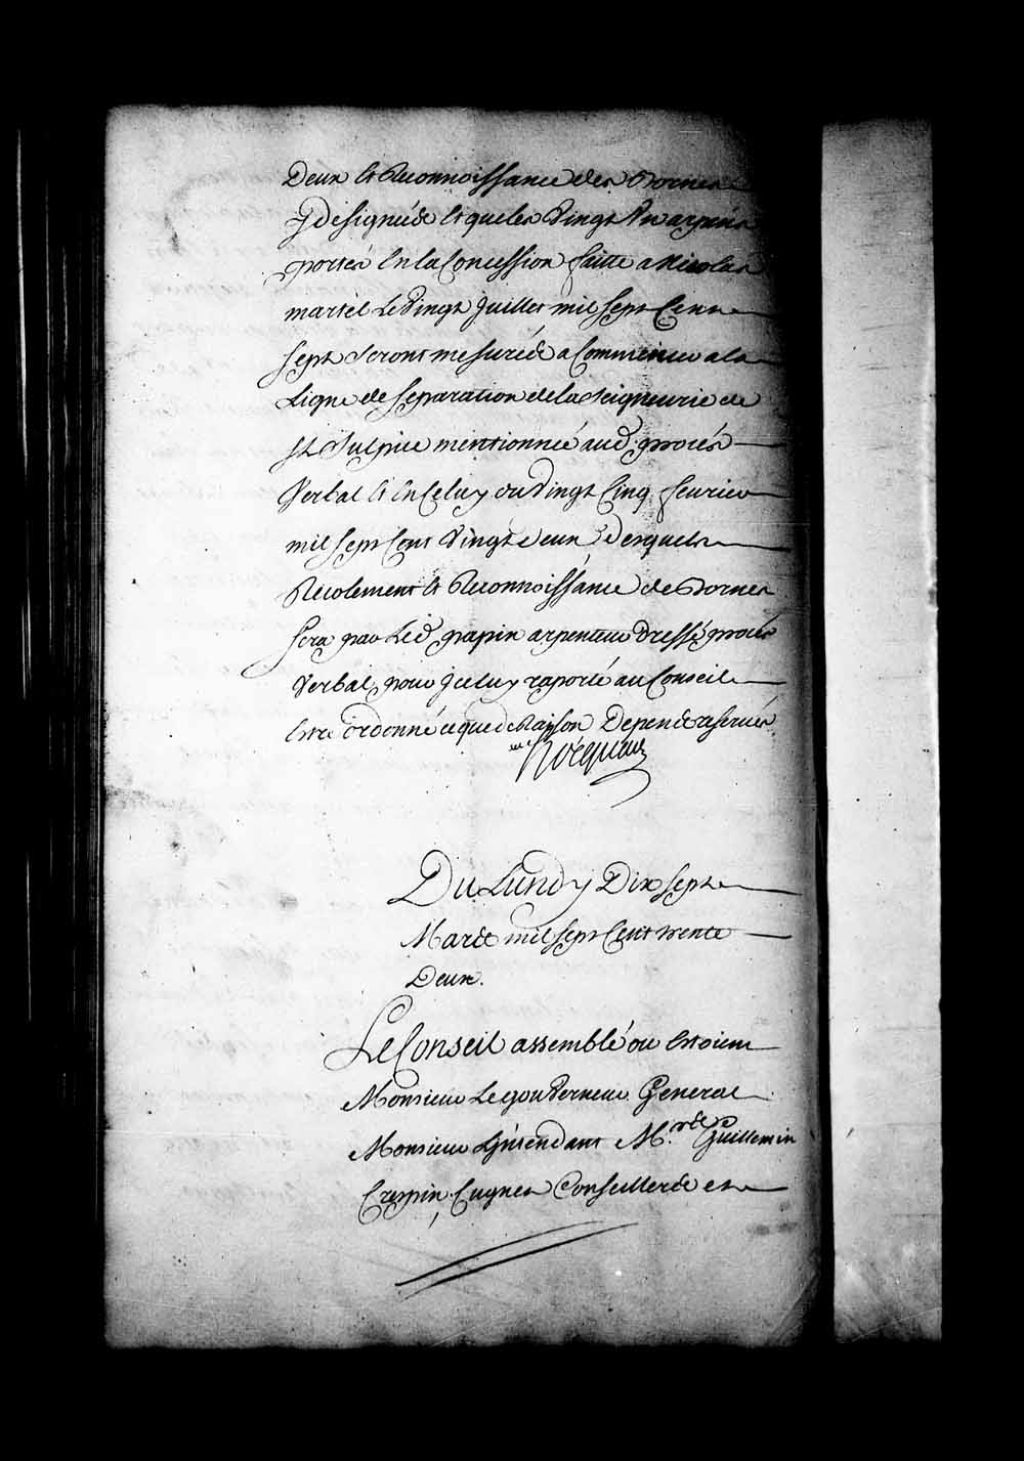 Deux et Reconnoissance des Bornes
y designées et que les Vingt Un arpens
portés en la Concession faitte a Nicolas
martel le Vingt Juillet mil sept Cent
sept seront mesurées a Commencer a la
Ligne de separation de la seigneurie de
St Sulpice mentionnée aud. procés
Verbal et en Celuy du Vingt Cinq fevrier
mil sept Cent Vingt deux desquels
Recolement et Reconnoissance de Bornes
sera par Led. papin arpenteur dressé procés
Verbal, pour Jceluy raporté au Conseil
Estre ordonné ce que de Raison Depens reservés
Hocquart
Du Lundy Dix sept
Mars mil sept Cent trente
Deux.
Le Conseil assemblé ou Estoient
Monsieur Le gouverneur General
Monsieur L'Intendant Mrs Guillemin
Crespin, Cugnet Conseillers et